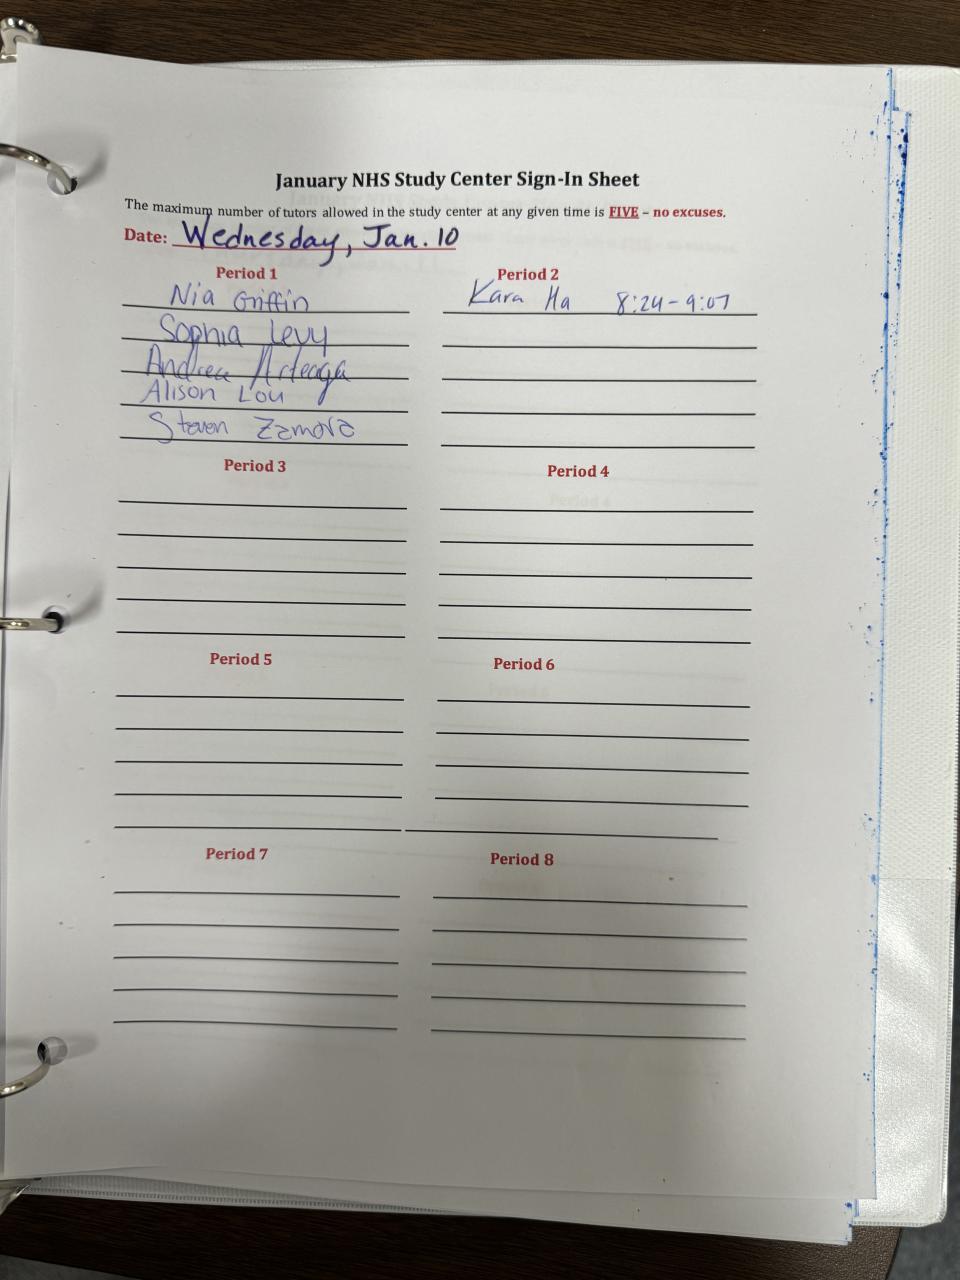 January NHS Study Center Sign-In Sheet
The maximum number of tutors allowed in the study center at any given time is FIVE – no excuses.
Date: Wednesday, Jan. 10
Period 1
Nia Griffin
Sophia Levy
Andrea Arteaga
Alison Lou
Steven Zamora
Period 2
Kara Ha 8:24-9:07
Period 3
Period 4
Period 5
Period 6
Period 7
Period 8